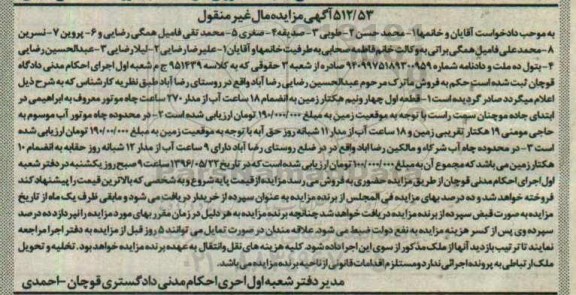 ۵۱۲/۵۳ آگهی مزایده مال غیر منقول
به موجب دادخواست آقایان و خانمها ۱- محمد حسن ۲- طوبی ۳- صدیقه ۴- صغری ۵- محمد تقی فامیل همگی رضایی و ۶- پروین ۷- نسرین
۸- محمدعلی فامیل همگی براتی به وکالت خانم فاطمه صحابی به طرفیت خانمها و آقایان ۱- علیرضا رضایی ۲- لیلا رضایی ۳- عبدالحسین رضایی
۴- بتول ده ملت و دادنامه شماره ۹۴۰۹۹۷۵۱۸۹۳۰۰۹۵۹ صادره از شعبه ۳ حقوقی که به کلاسه ۹۵۱۴۳۹ ج م شعبه اول اجرای احکام مدنی دادگاه
قوچان ثبت شده است حکم به فروش ماترک مرحوم عبدالحسین رضایی رضا آباد واقع در روستای رضا آباد طبق نظریه کارشناس که به شرح ذیل
اعلام میگردد صادر گردیده است ۱- قطعه اول چهار ونیم هکتار زمین به انضمام ۱۸ ساعت آب از مدار ۲۷۰ ساعت چاه موتور معروف به ابراهیمی در
ابتدای جاده موچنان سمت راست با توجه به موقعیت زمین به مبلغ ۱۹۰/۰۰۰/۰۰۰ تومان ارزیابی شده است ۲- در محدوده چاه موتور آب موسوم به
حاجی مومنی ۱۹ هکتار تقریبی زمین و ۱۸ ساعت آب از مدار ۱۱ شبانه روز حق آبه با توجه به موقعیت زمین به مبلغ ۱۹۰/۰۰۰/۰۰۰ تومان ارزیابی شده
است ۳- در محدوده چاه آب شرکاء و مالکین رضا آباد واقع در در ضلع روستای رضا آباد دارای ۹ ساعت آب از مدار ۱۲ شبانه روز حقابه به انضمام ۱۰
هکتار زمین می باشد که مجموع آن به مبلغ ۱۰۰/۰۰۰/۰۰۰ تومان ارزیابی شده است که در تاریخ ۱۳۹۶/۰۵/۲۲ ساعت ۹ صبح روز یکشنبه در دفتر شعبه
اول اجرای احکام مدنی قوچان از طریق مزایده حضوری به فروش می رسد مزایده از قیمت پایه شروع و به کسی که بالاترین قیمت را پیشنهاد کند،
فروخته خواهد شد و ده درصد بهای مزایده فی المجلس از برنده مزایده به عنوان سپرده از خریدار دریافت می شود و مابقی ظرف یک ماه از تاریخ
مزایده به صورت قبض سپرده از برنده مزایده دریافت خواهد شد چنانچه برنده مزایده به هر دلیل در زمان مقرر بهای مورد مزایده را نپردازد ده درصد
سپرده وی پس از کسر هزینه مزایده به نفع دولت ضبط می شود. علاقه مندان در صورت تمایل می توانند ۵ روز قبل از مزایده به دفتر اجرا مراجعه
نمایند تا ترتیب بازدید آنها از ملک مذکور از سوی این اجرا داده شود. کلیه هزینه های نقل وانتقال به عهده برنده مزایده خواهد بود. تخلیه و تحویل
ملک ارتباطی به پرونده اجرائی ندارد و مستلزم اقدامات قانونی از ناحیه برنده مزایده می باشد.
مدیر دفتر شعبه اول اجرای احکام مدنی دادگستری قوچان - احمدی